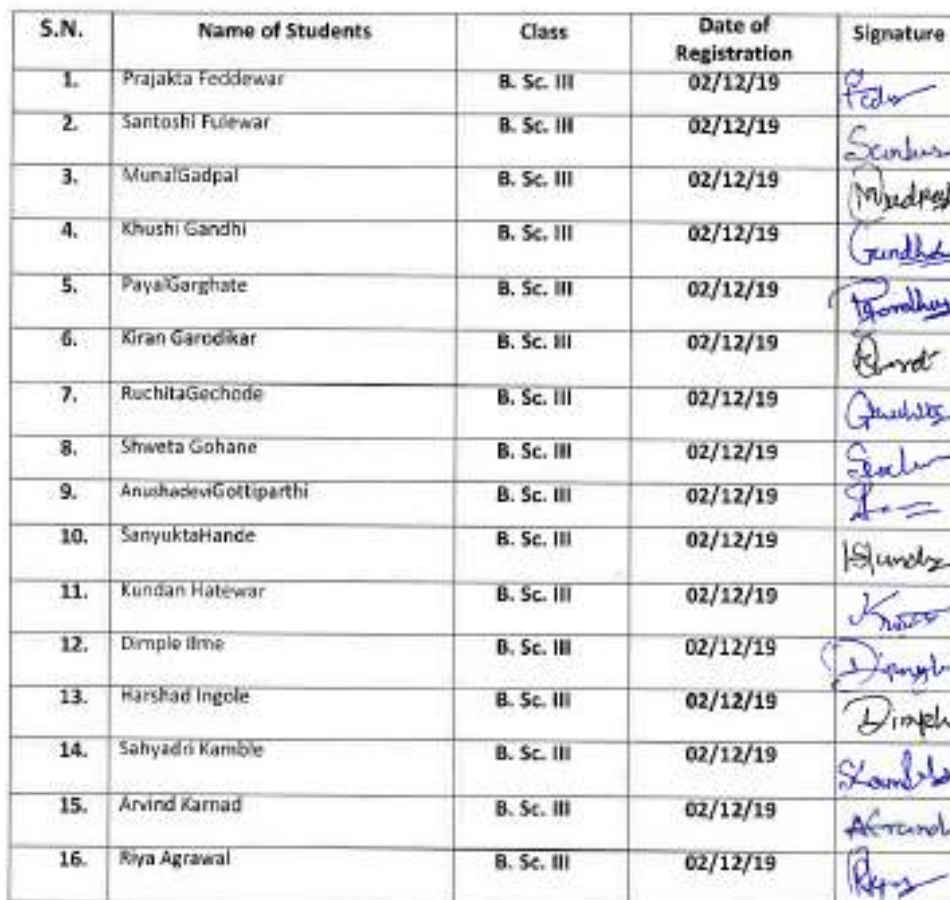 S.N. Name of Students Class Date of Registration Signature
1. Prajakta Feddewar B. Sc. III 02/12/19
2. Santoshi Fulewar B. Sc. III 02/12/19
3. MunalGadpal B. Sc. III 02/12/19
4. Khushi Gandhi B. Sc. III 02/12/19
5. PayalGarghate B. Sc. III 02/12/19
6. Kiran Garodikar B. Sc. III 02/12/19
7. RuchitaGechode B. Sc. III 02/12/19
8. Shweta Gohane B. Sc. III 02/12/19
9. AnushadeviGottiparthi B. Sc. III 02/12/19
10. SanyuktaHande B. Sc. III 02/12/19
11. Kundan Hatewar B. Sc. III 02/12/19
12. Dimple Ilme B. Sc. III 02/12/19
13. Harshad Ingole B. Sc. III 02/12/19
14. Sahyadri Kamble B. Sc. III 02/12/19
15. Arvind Karnad B. Sc. III 02/12/19
16. Riya Agrawal B. Sc. III 02/12/19